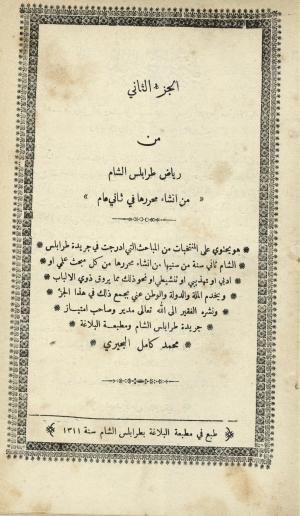 الجزء الثاني
من
رياض طرابلس الشام
« من انشاء محررها في ثاني عام »
* هو يحتوي على المنتخبات من المباحث التي ادرجت في جريدة طرابلس *
* الشام ثاني سنة من سنيها من انشاء محررها من كل مبحث علمي او *
* ادبي او تهذيبي او تنشيطي او نحو ذلك مما يروق ذوي الالباب *
* ويخدم الملة والدولة والوطن عني بجمع ذلك في هذا الجزء *
* ونشره الفقير الى الله تعالى مدير وصاحب امتياز *
* جريدة طرابلس الشام ومطبعة البلاغة *
* محمد كامل البحيري *
طبع في مطبعة البلاغة بطرابلس الشام سنة ١٣١١